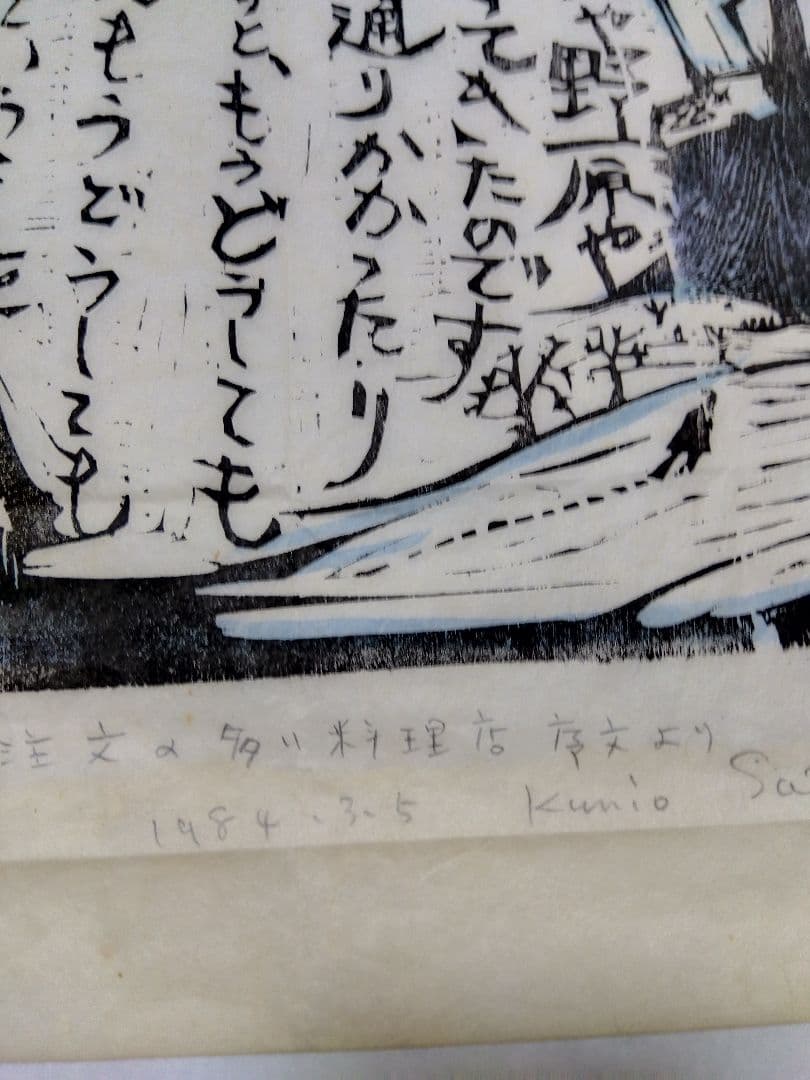 や野原や
てきたのです
通りかかったり
と、もうどうしても
もうどうしても
注文の多い料理店 序文より
1984.3.5 Kunio Sa